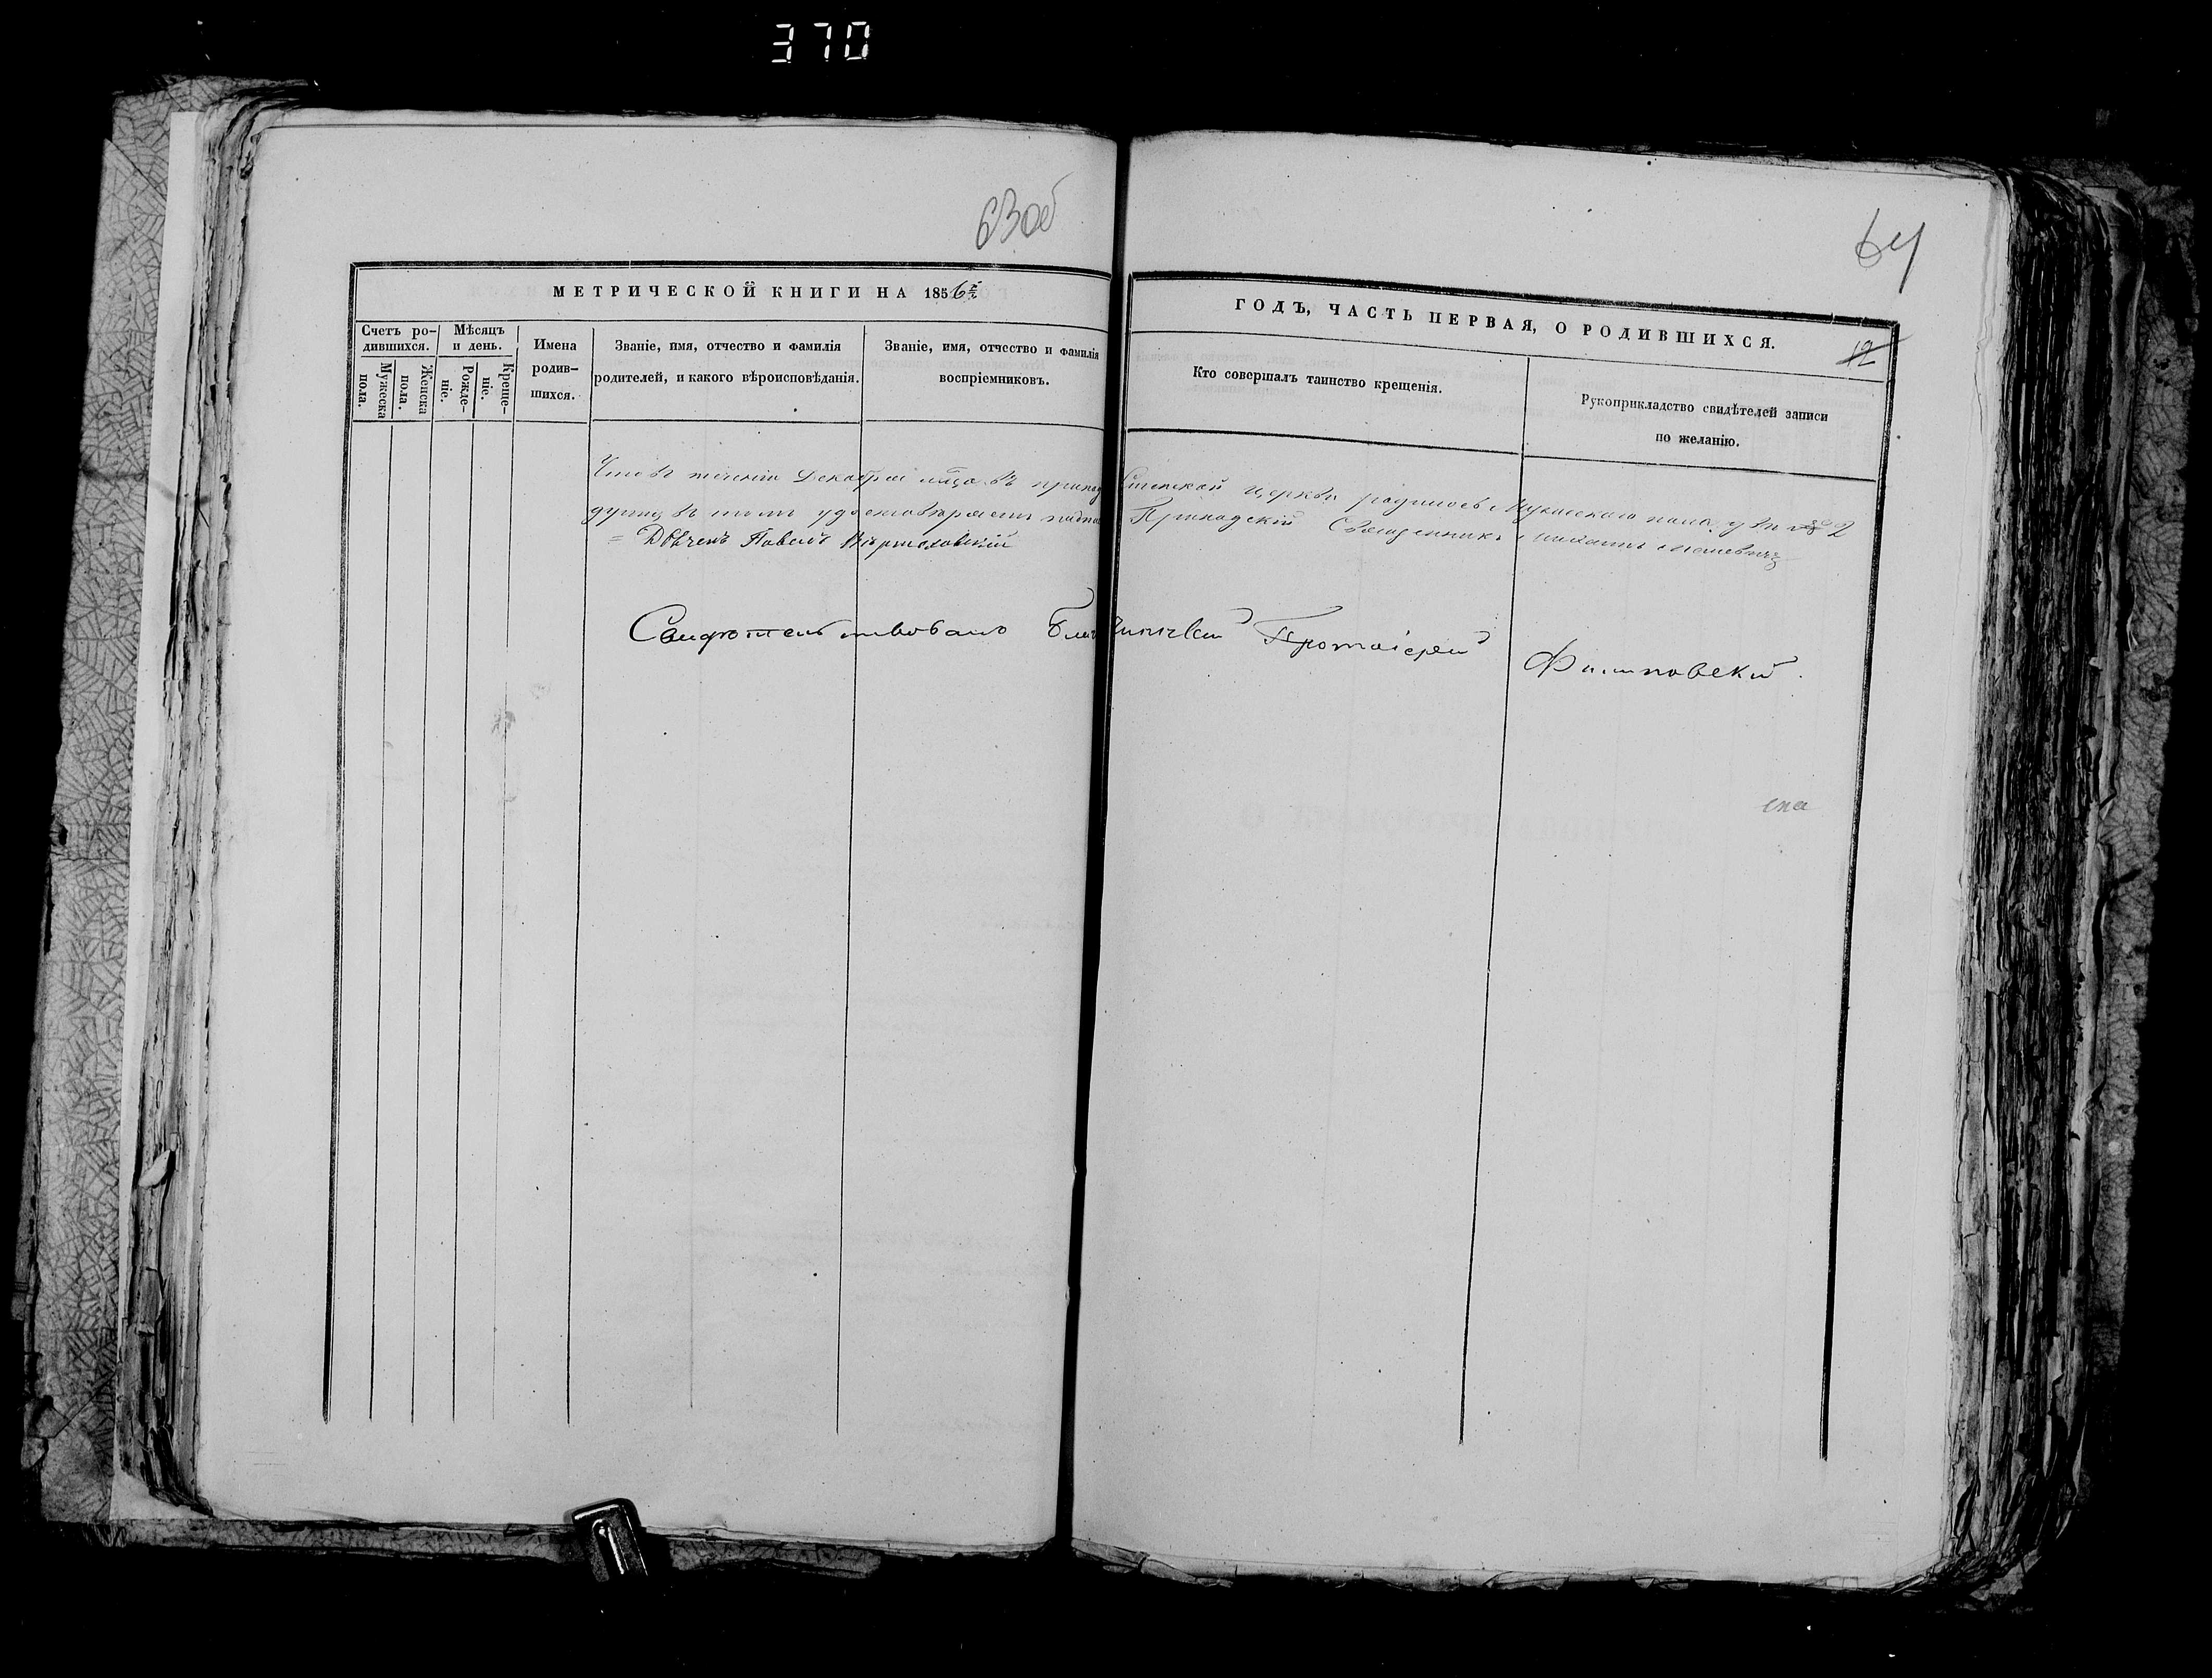 370
63об
64
МЕТРИЧЕСКОЙ КНИГИ НА 1856й
ГОДЪ, ЧАСТЬ ПЕРВАЯ, О РОДИВШИХСЯ.
12
Счетъ ро-
дившихся.
Мужеска
пола.
Женска
пола.
Мѣсяцъ
и день.
Рожде-
ніе.
Креще-
ніе.
Имена
родив-
шихся.
Званіе, имя, отчество и фамилія
родителей, и какого вѣроисповѣданія.
Званіе, имя, отчество и фамилія
воспріемниковъ.
Кто совершалъ таинство крещенія.
Рукоприкладство свидѣтелей записи
по желанію.
Что въ теченіи Декабря мца въ приход церкви родилось Мужескаго пола 2
душъ въ томъ удостовѣряемъ Приходскій Священникъ
Павелъ
Свидѣтельствовалъ Благочинный Протоіерей Филиповскій.